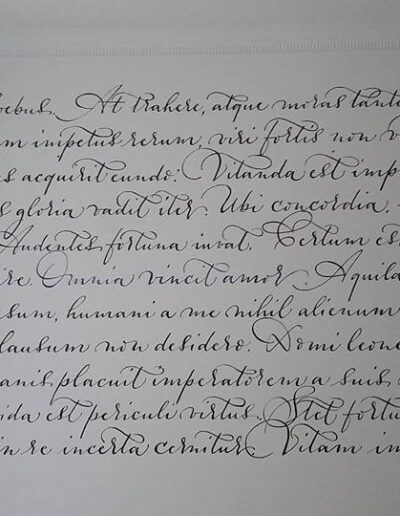 oebus. At trahere, atque moras tant
m impetus rerum, viri fortis non v
es acquirit eundo. Vitanda est imp
s gloria vadit iter. Ubi concordia.
Audentes fortuna iuvat. Certum es
ire. Omnia vincit amor. Aquila
sum, humani a me nihil alienum
lausum non desidero. Domi leone
anis placuit imperatorem a suis
ida est periculi virtus. Stet fortu
in re incerta cernitur. Vitam im